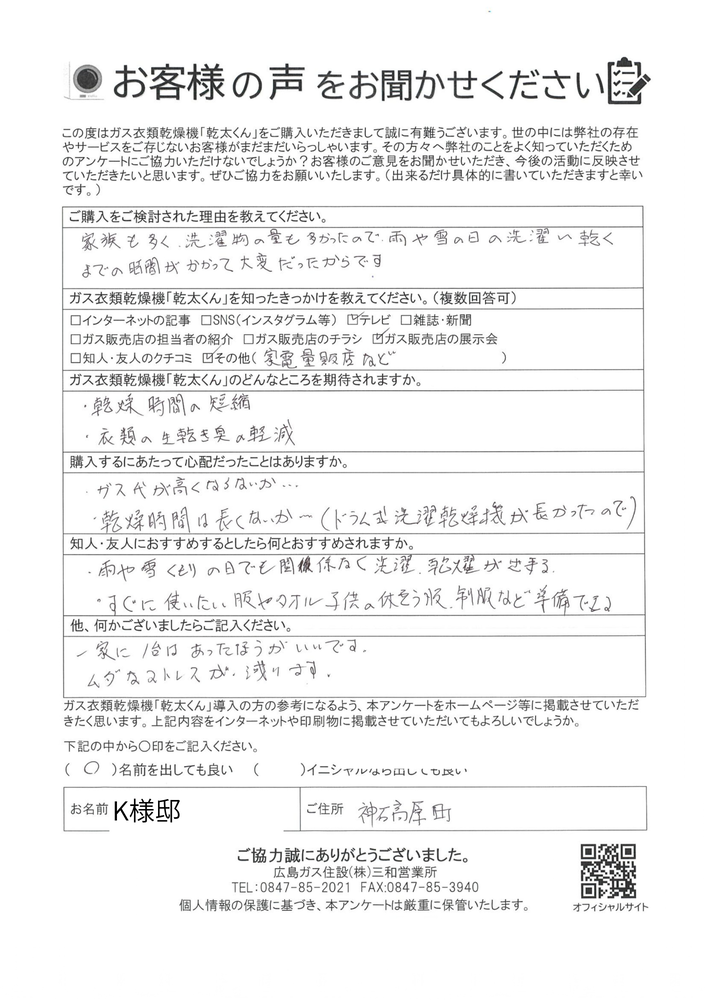 お客様の声をお聞かせください
この度はガス衣類乾燥機「乾太くん」をご購入いただきまして誠に有難うございます。世の中には弊社の存在
やサービスをご存じないお客様がまだまだいらっしゃいます。その方々へ弊社のことをよく知っていただくため
のアンケートにご協力いただけないでしょうか？お客様のご意見をお聞かせいただき、今後の活動に反映させ
ていただきたいと思います。ぜひご協力をお願いいたします。（出来るだけ具体的に書いていただきますと幸い
です。）
ご購入をご検討された理由を教えてください。
家族も多く、洗濯物の量も多かったので、雨や雪の日の洗濯い乾く
までの時間がかかって大変だったからです
ガス衣類乾燥機「乾太くん」を知ったきっかけを教えてください。（複数回答可）
□インターネットの記事 □SNS(インスタグラム等) ☑テレビ □雑誌・新聞
□ガス販売店の担当者の紹介 □ガス販売店のチラシ ☑ガス販売店の展示会
□知人・友人のクチコミ ☑その他( 家電量販店など )
ガス衣類乾燥機「乾太くん」のどんなところを期待されますか。
・乾燥時間の短縮
・衣類の生乾き臭の軽減
購入するにあたって心配だったことはありますか。
・ガス代が高くなるないか…
・乾燥時間は長くないか…(ドラム式洗濯乾燥機が長かったので)
知人・友人におすすめするとしたら何とおすすめされますか。
・雨や雪くもりの日でも関係なく洗濯、乾燥が出来る
・すぐに使いたい服やタオル子供の体そう服、制服など準備できる
他、何かございましたらご記入ください。
一家に1台はあったほうがいいです。
ムダなストレスが、減ります。
ガス衣類乾燥機「乾太くん」導入の方の参考になるよう、本アンケートをホームページ等に掲載させていただ
きたく思います。上記内容をインターネットや印刷物に掲載させていただいてもよろしいでしょうか。
下記の中から〇印をご記入ください。
( ○ )名前を出しても良い ( )イニシャルなら出しても良い
お名前 K様邸 ご住所 神石高原町
ご協力誠にありがとうございました。
広島ガス住設(株)三和営業所
TEL:0847-85-2021 FAX:0847-85-3940
個人情報の保護に基づき、本アンケートは厳重に保管いたします。
オフィシャルサイト